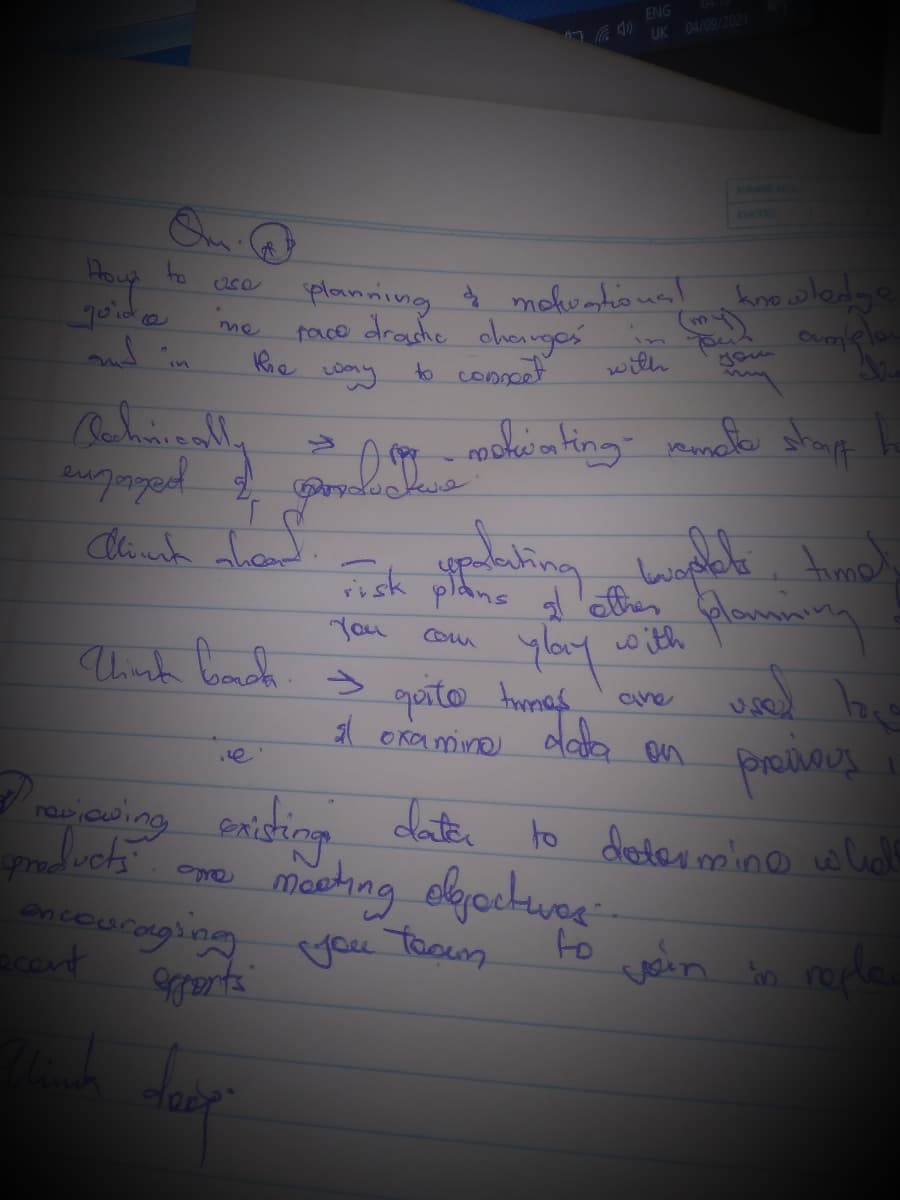 ENG
UK 04/09/2021
Qn.
How to use planning & motivational knowledge
guide me face drastic changes in your (my)
and in the way to connect with your my
Technically → for motivating remote staff
engaged & productive.
Think ahead. — updating budgets, 
risk plans & other planning
you can play with
Think back. → quite times are used to
& examine data on previous
ie.
reviewing existing data to determine
products are meeting objectives.
encouraging you team to join in
efforts
Think deep.